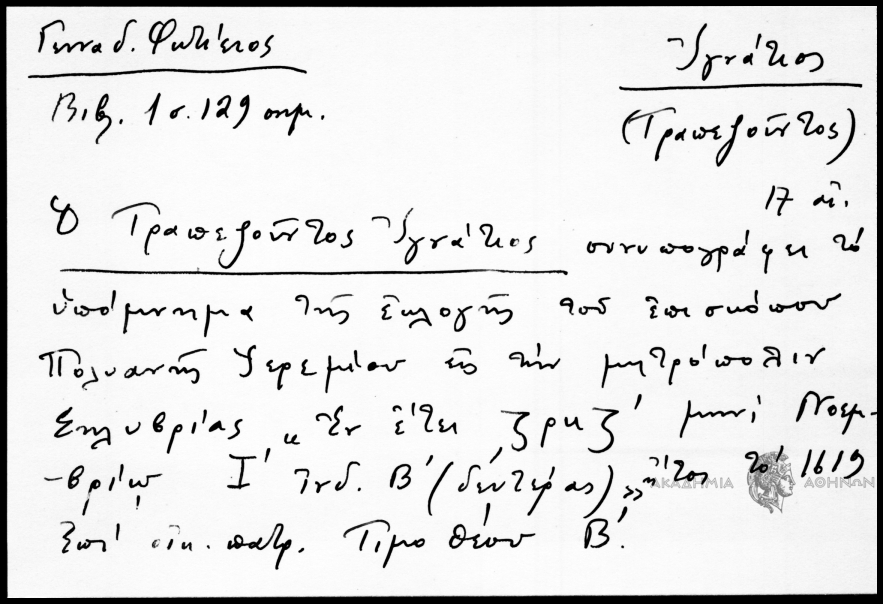 Γενναδ. Φωτίειος
Βιβλ. 1 σ. 129 σημ.
Ἰγνάτιος
(Τραπεζοῦντος)
17 αἰ.
Ὁ Τραπεζοῦντος Ἰγνάτιος συνυπογράφει τὸ
ὑπόμνημα τῆς ἐκλογῆς τοῦ ἐπισκόπου
Πολυανῆς Ἱερεμίου εἰς τὴν μητρόπολιν
Σηλυβρίας „ Ἐν ἔτει ζρκζ' μηνὶ Νοεμ-
-βρίῳ Ι' Ἰνδ. Β' (δευτέρας) » ἤτοι τὸ 1619
ἐπὶ οἰκ. πατρ. Τιμοθέου Β'.
ΑΚΑΔΗΜΙΑ ΑΘΗΝΩΝ